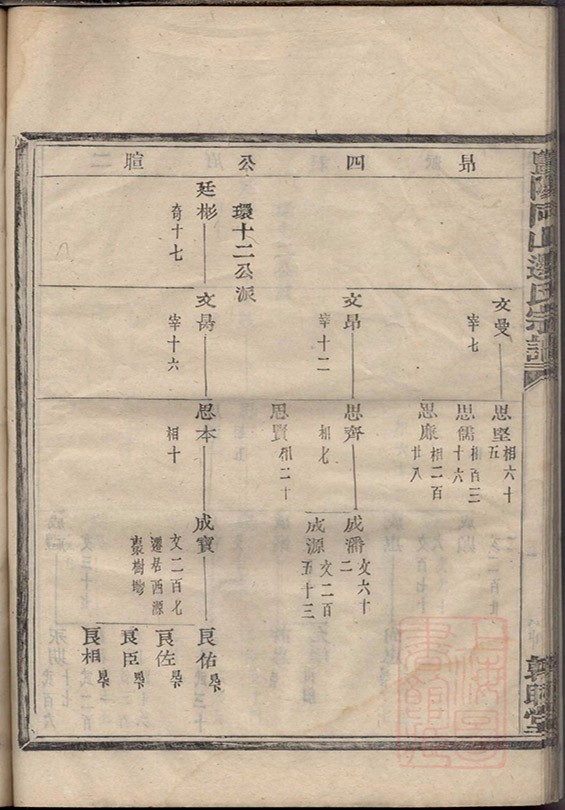 暨陽同山邊氏宗譜
昂
四
公
暄
文曼
宰七
思堅
相六十
五
思儒
相百三
十六
思廉
相二百
廿八
文昂
宰十二
思齊
相七
成潛
文六十
二
成源
文二百
五十三
思賢
相二十
環十二公派
廷彬
奇十七
文昺
宰十六
思本
相十
成寶
文二百七
遷居西源
棗樹塢
良佑
良佐
良臣
良相